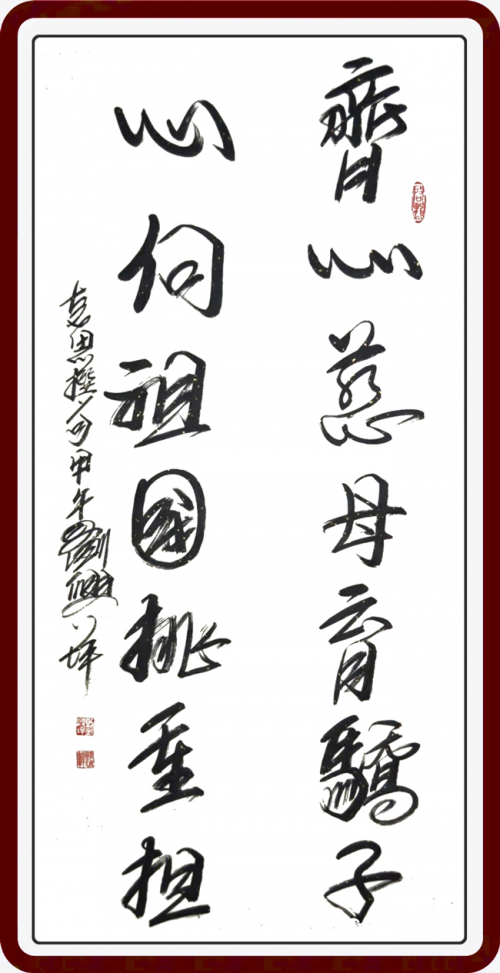 齊心慈母育驕子
心向祖國挑重担
思撰句甲午劉坪